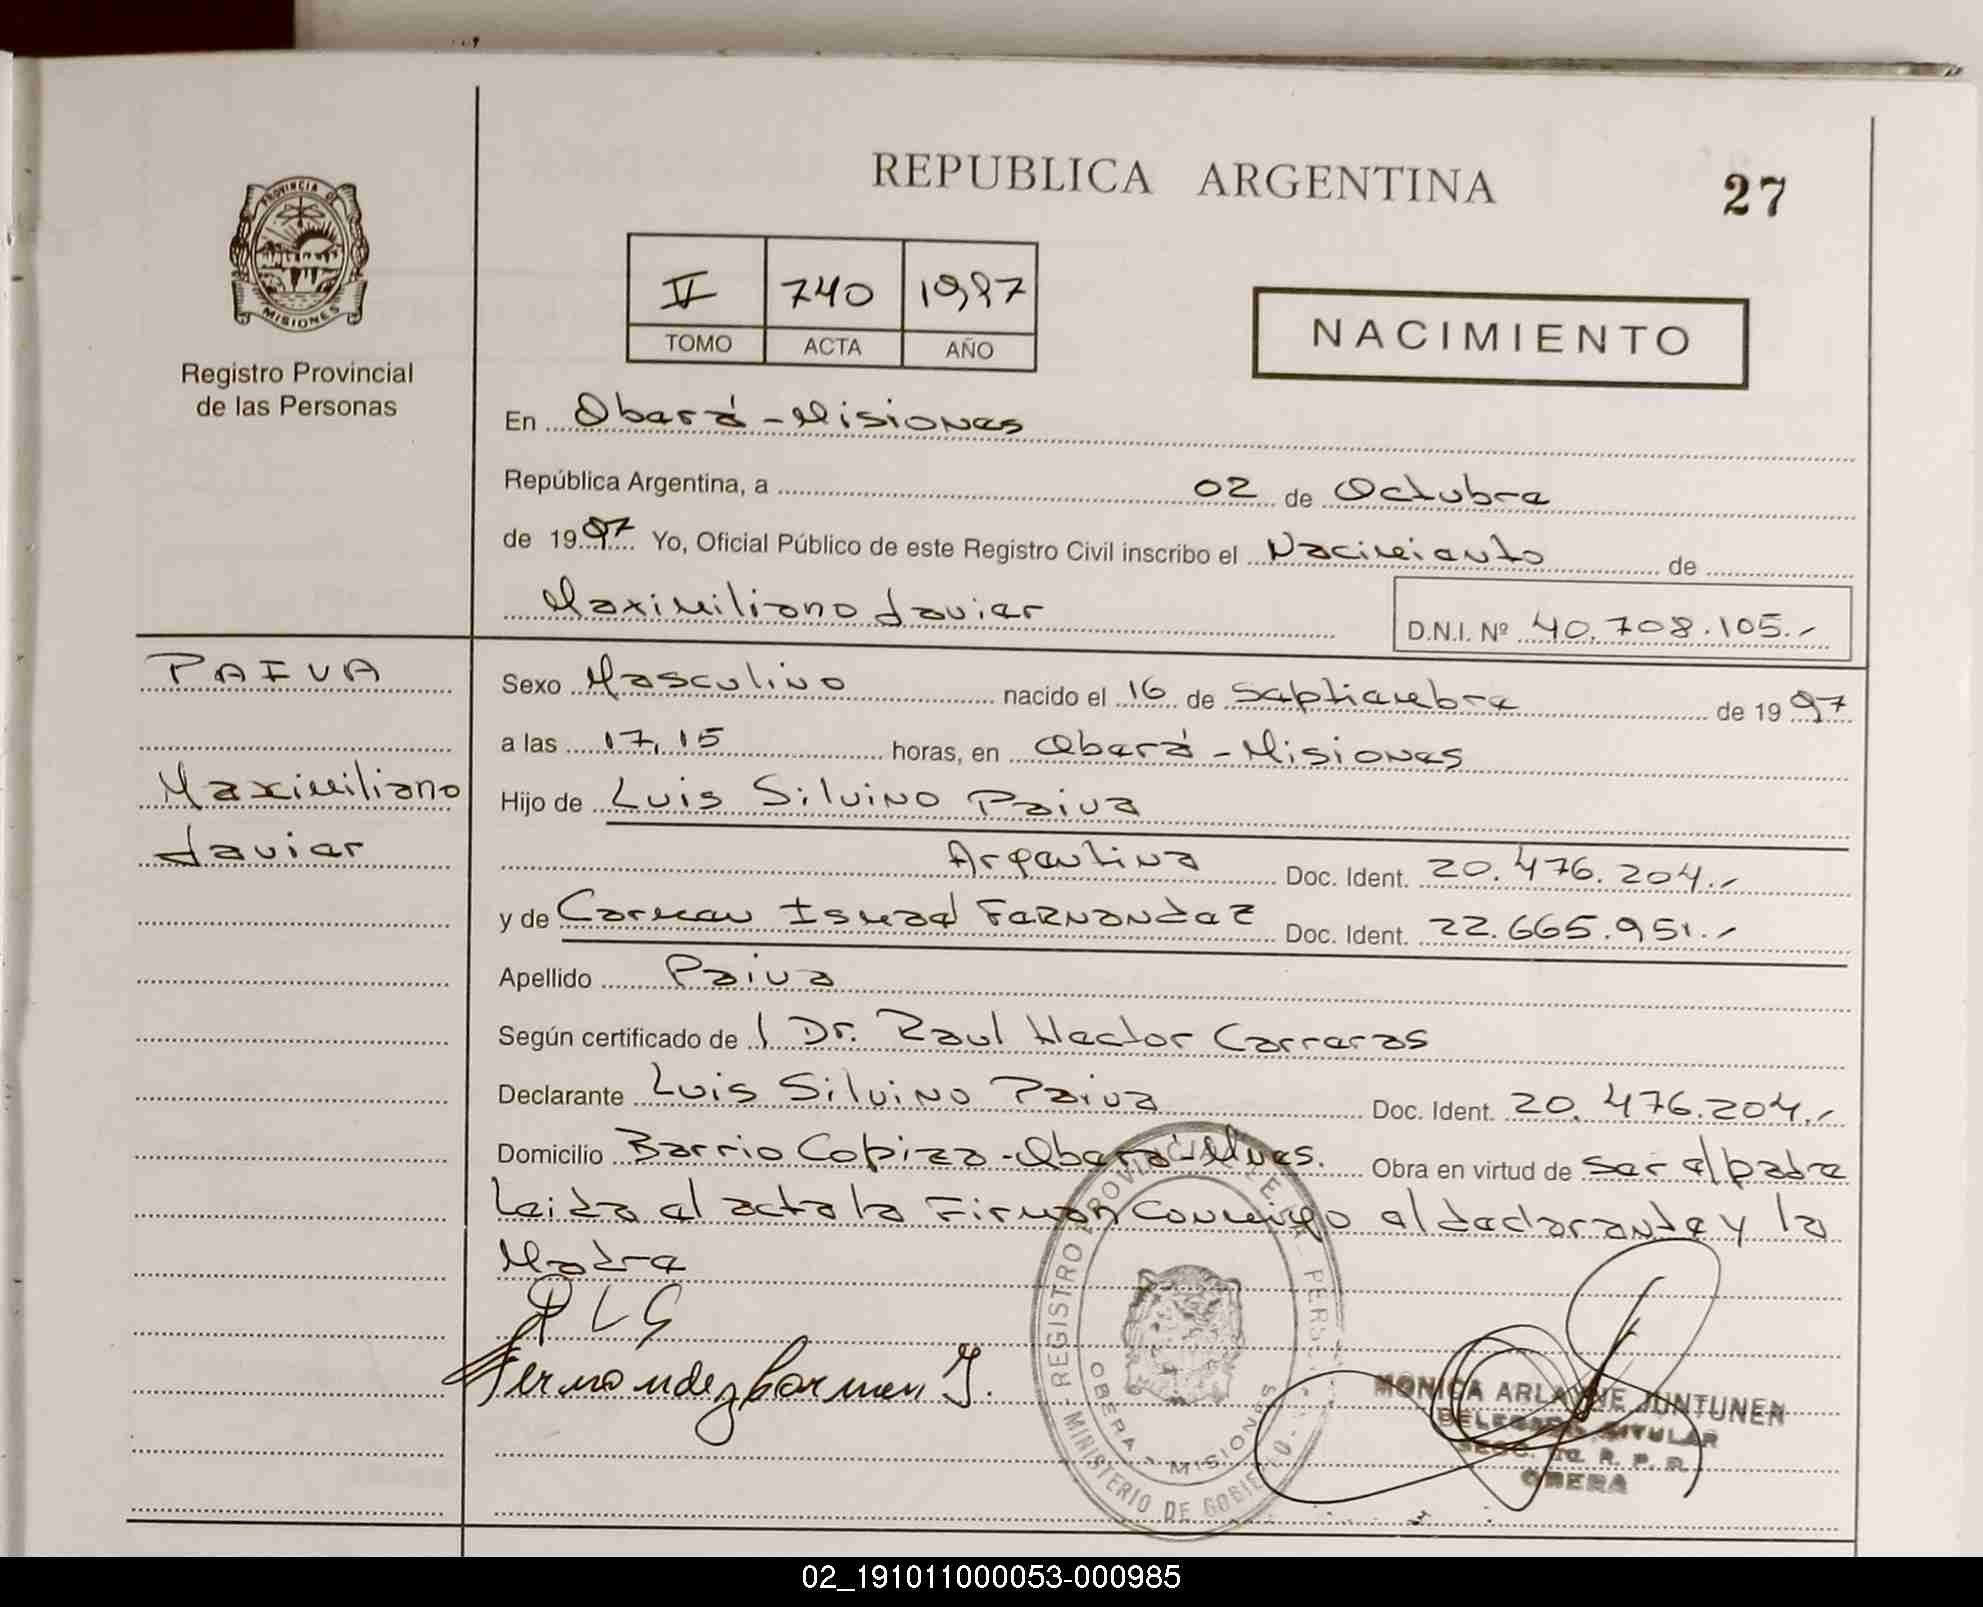 REPUBLICA ARGENTINA
27
PROVINCIA DE
MISIONES
Registro Provincial
de las Personas
V 740 1997
TOMO ACTA AÑO
NACIMIENTO
En Oberá - Misiones
República Argentina, a 02 de Octubre
de 1997 Yo, Oficial Público de este Registro Civil inscribo el Nacimiento de
Maximiliano Javier
D.N.I. Nº 40.708.105.-
PAIVA
Maximiliano
Javier
Sexo Masculino nacido el 16 de Septiembre de 1997
a las 17,15 horas, en Oberá - Misiones
Hijo de Luis Silvino Paiva
Argentina Doc. Ident. 20.476.204.-
y de Carmen Fernandez Doc. Ident. 22.665.951.-
Apellido Paiva
Según certificado de l Dr. Raul Hector Carreras
Declarante Luis Silvino Paiva Doc. Ident. 20.476.204.-
Domicilio Barrio Copisa - Oberá - Mnes. Obra en virtud de ser el padre
Leida el acta la Firman Conmigo el declarante y la
Madre
P L S
Fernandez Carmen I.
REGISTRO PROVINCIAL DE LAS PERSONAS
OBERA - MISIONES
MINISTERIO DE GOBIERNO
MONICA ARLAYNE JUNTUNEN
DELEGADA TITULAR
R. P. P.
OBERA
02_191011000053-000985